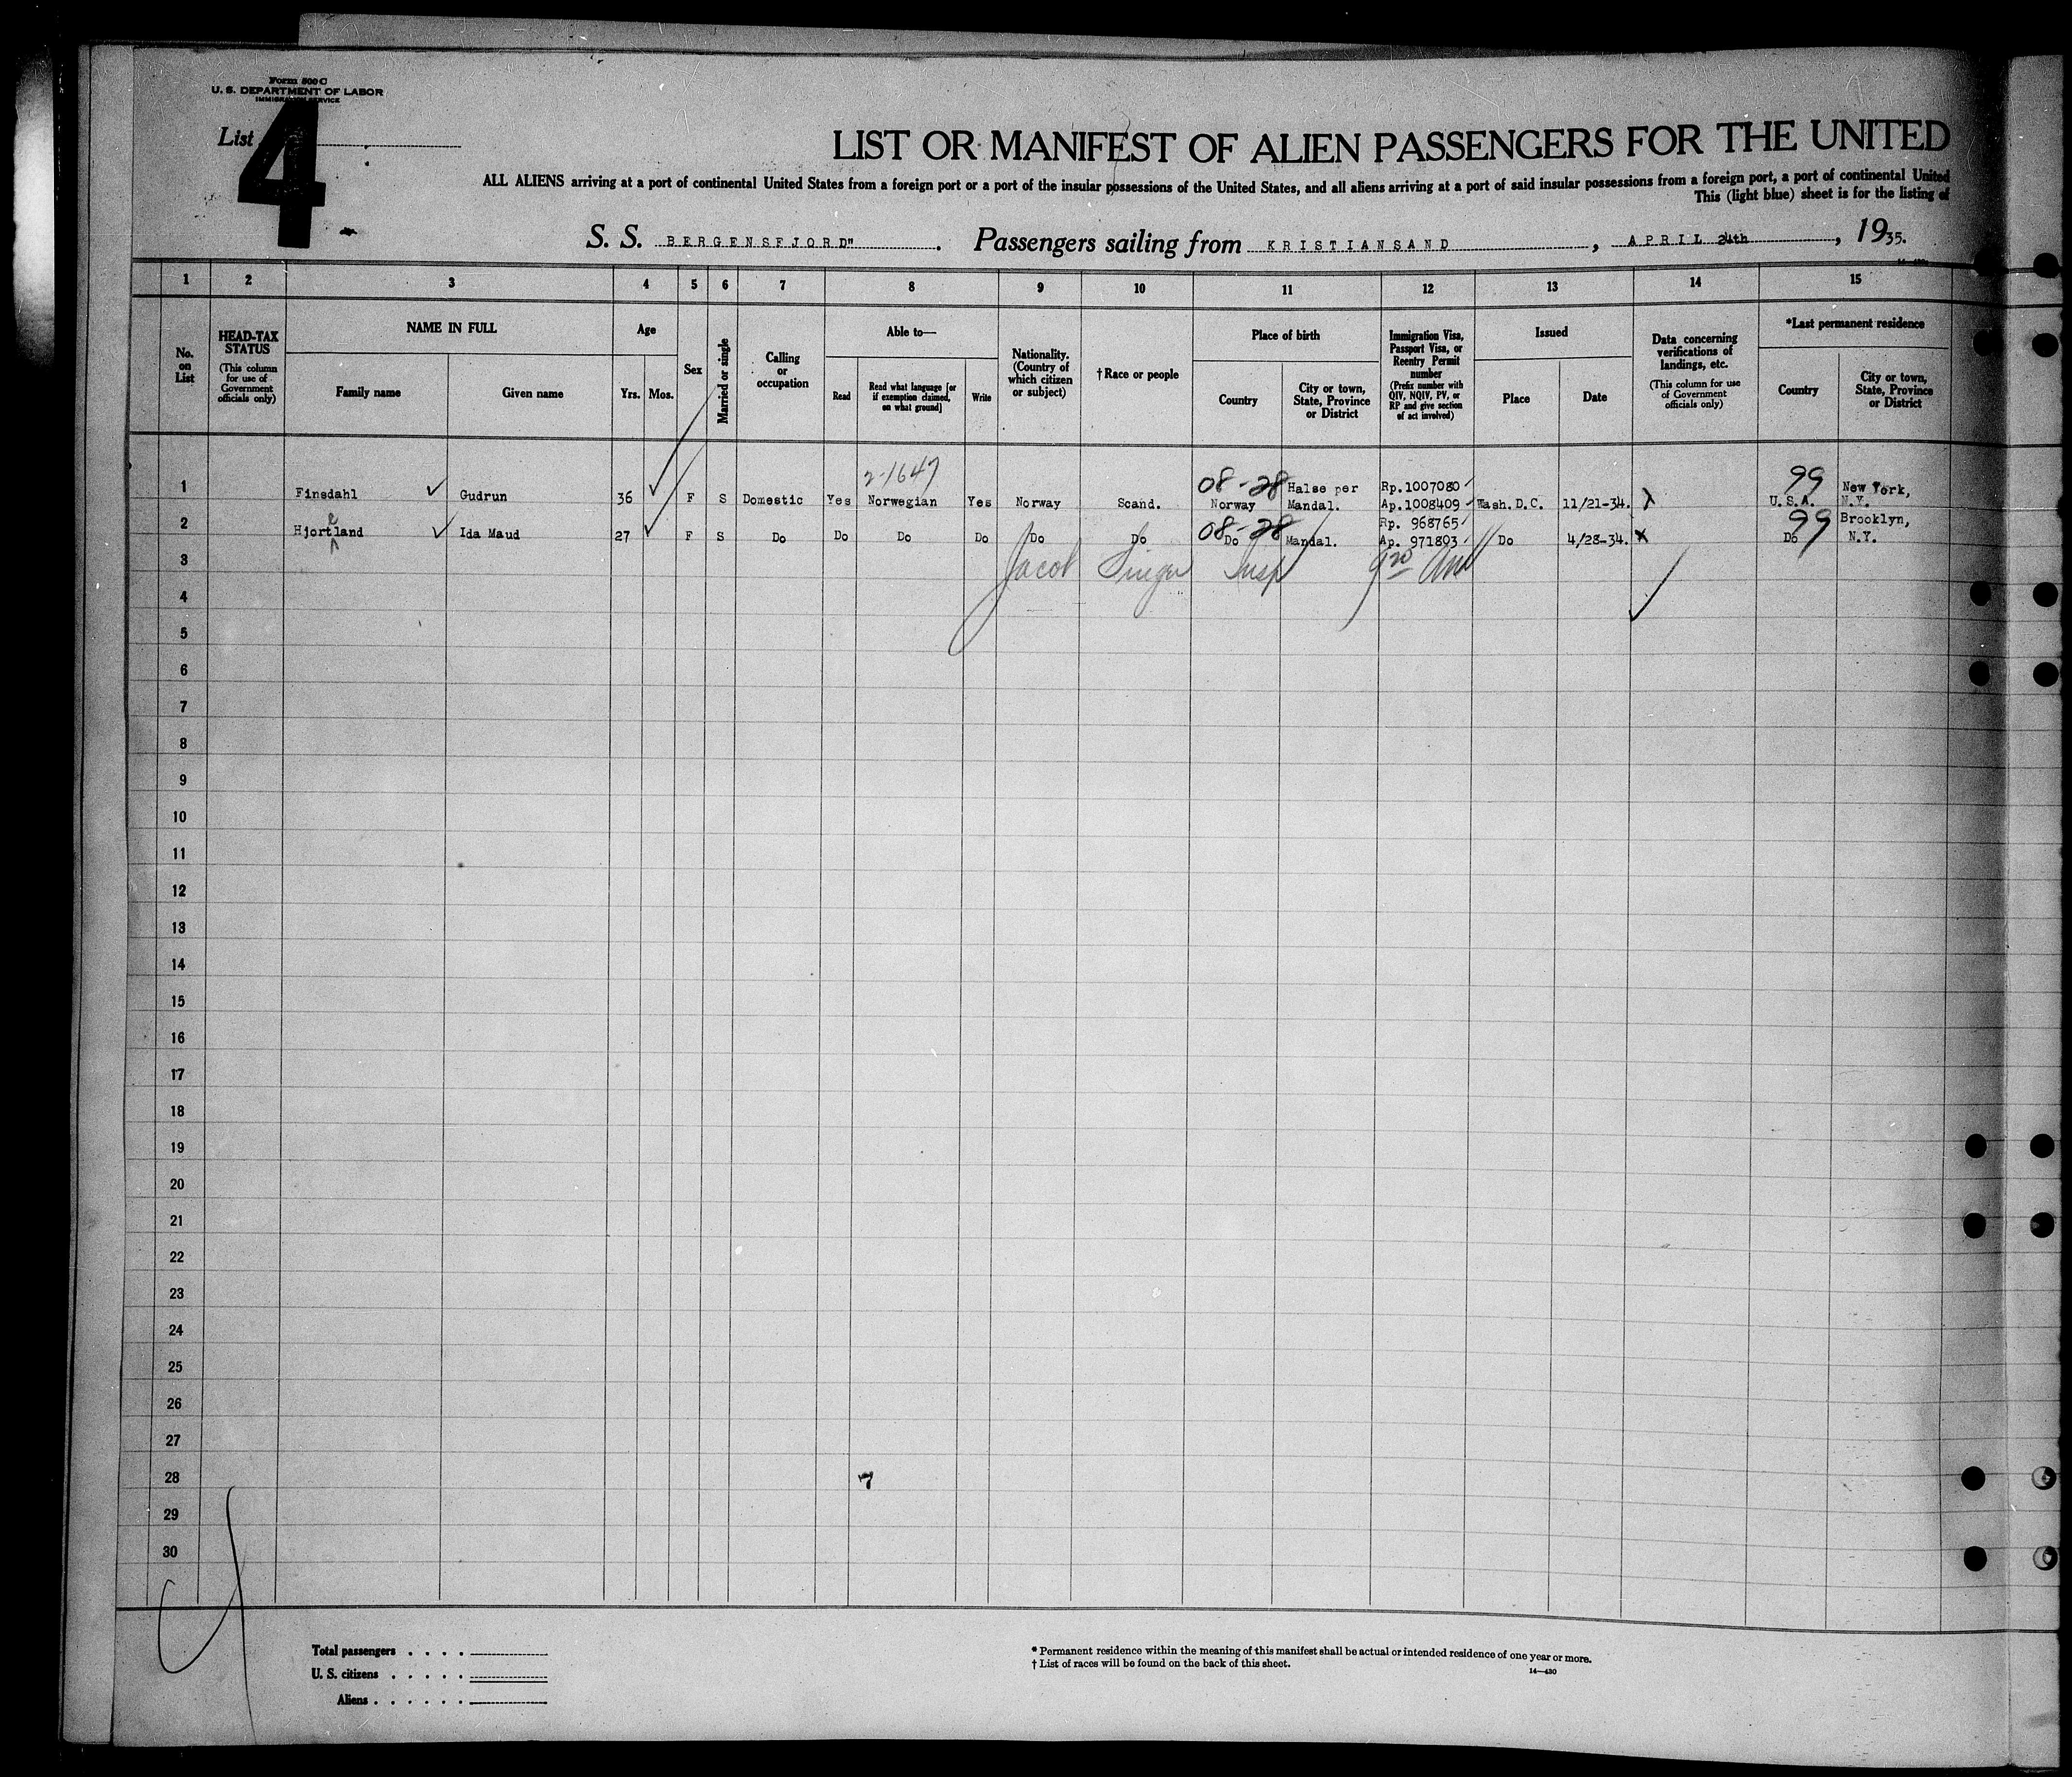 Form 500 C
U. S. DEPARTMENT OF LABOR
IMMIGRATION SERVICE
List 4
LIST OR MANIFEST OF ALIEN PASSENGERS FOR THE UNITED
ALL ALIENS arriving at a port of continental United States from a foreign port or a port of the insular possessions of the United States, and all aliens arriving at a port of said insular possessions from a foreign port, a port of continental United
This (light blue) sheet is for the listing of
S. S. BERGENSFJORD" . Passengers sailing from KRISTIANSAND , APRIL 24th , 1935.
1 2 3 4 5 6 7 8 9 10 11 12 13 14 15
No. on List
HEAD-TAX STATUS (This column for use of Government officials only)
NAME IN FULL
Family name Given name
Age
Yrs. Mos.
Sex
Married or single
Calling or occupation
Able to—
Read
Read what language [or if exemption claimed, on what ground]
Write
Nationality. (Country of which citizen or subject)
†Race or people
Place of birth
Country
City or town, State, Province or District
Immigration Visa, Passport Visa, or Reentry Permit number (Prefix number with QIV, NQIV, PV, or RP and give section of act involved)
Issued
Place Date
Data concerning verifications of landings, etc. (This column for use of Government officials only)
*Last permanent residence
Country
City or town, State, Province or District
2-1647
08-28 Halse per Rp.1007080 99 New York,
1 Finsdahl Gudrun 36 F S Domestic Yes Norwegian Yes Norway Scand. Norway Mandal. Ap.1008409 Wash.D.C. 11/21-34. U.S.A. N.Y.
e 08-28 Rp. 968765 99 Brooklyn,
2 Hjortland Ida Maud 27 F S Do Do Do Do Do Do Do Mandal. Ap. 971803 Do 4/28-34. x Do N.Y.
3 Jacob Singer Insp
4
5
6
7
8
9
10
11
12
13
14
15
16
17
18
19
20
21
22
23
24
25
26
27
28 7
29
30
Total passengers . . . .
U. S. citizens . . . . .
Aliens . . . . . .
* Permanent residence within the meaning of this manifest shall be actual or intended residence of one year or more.
† List of races will be found on the back of this sheet.
14—430